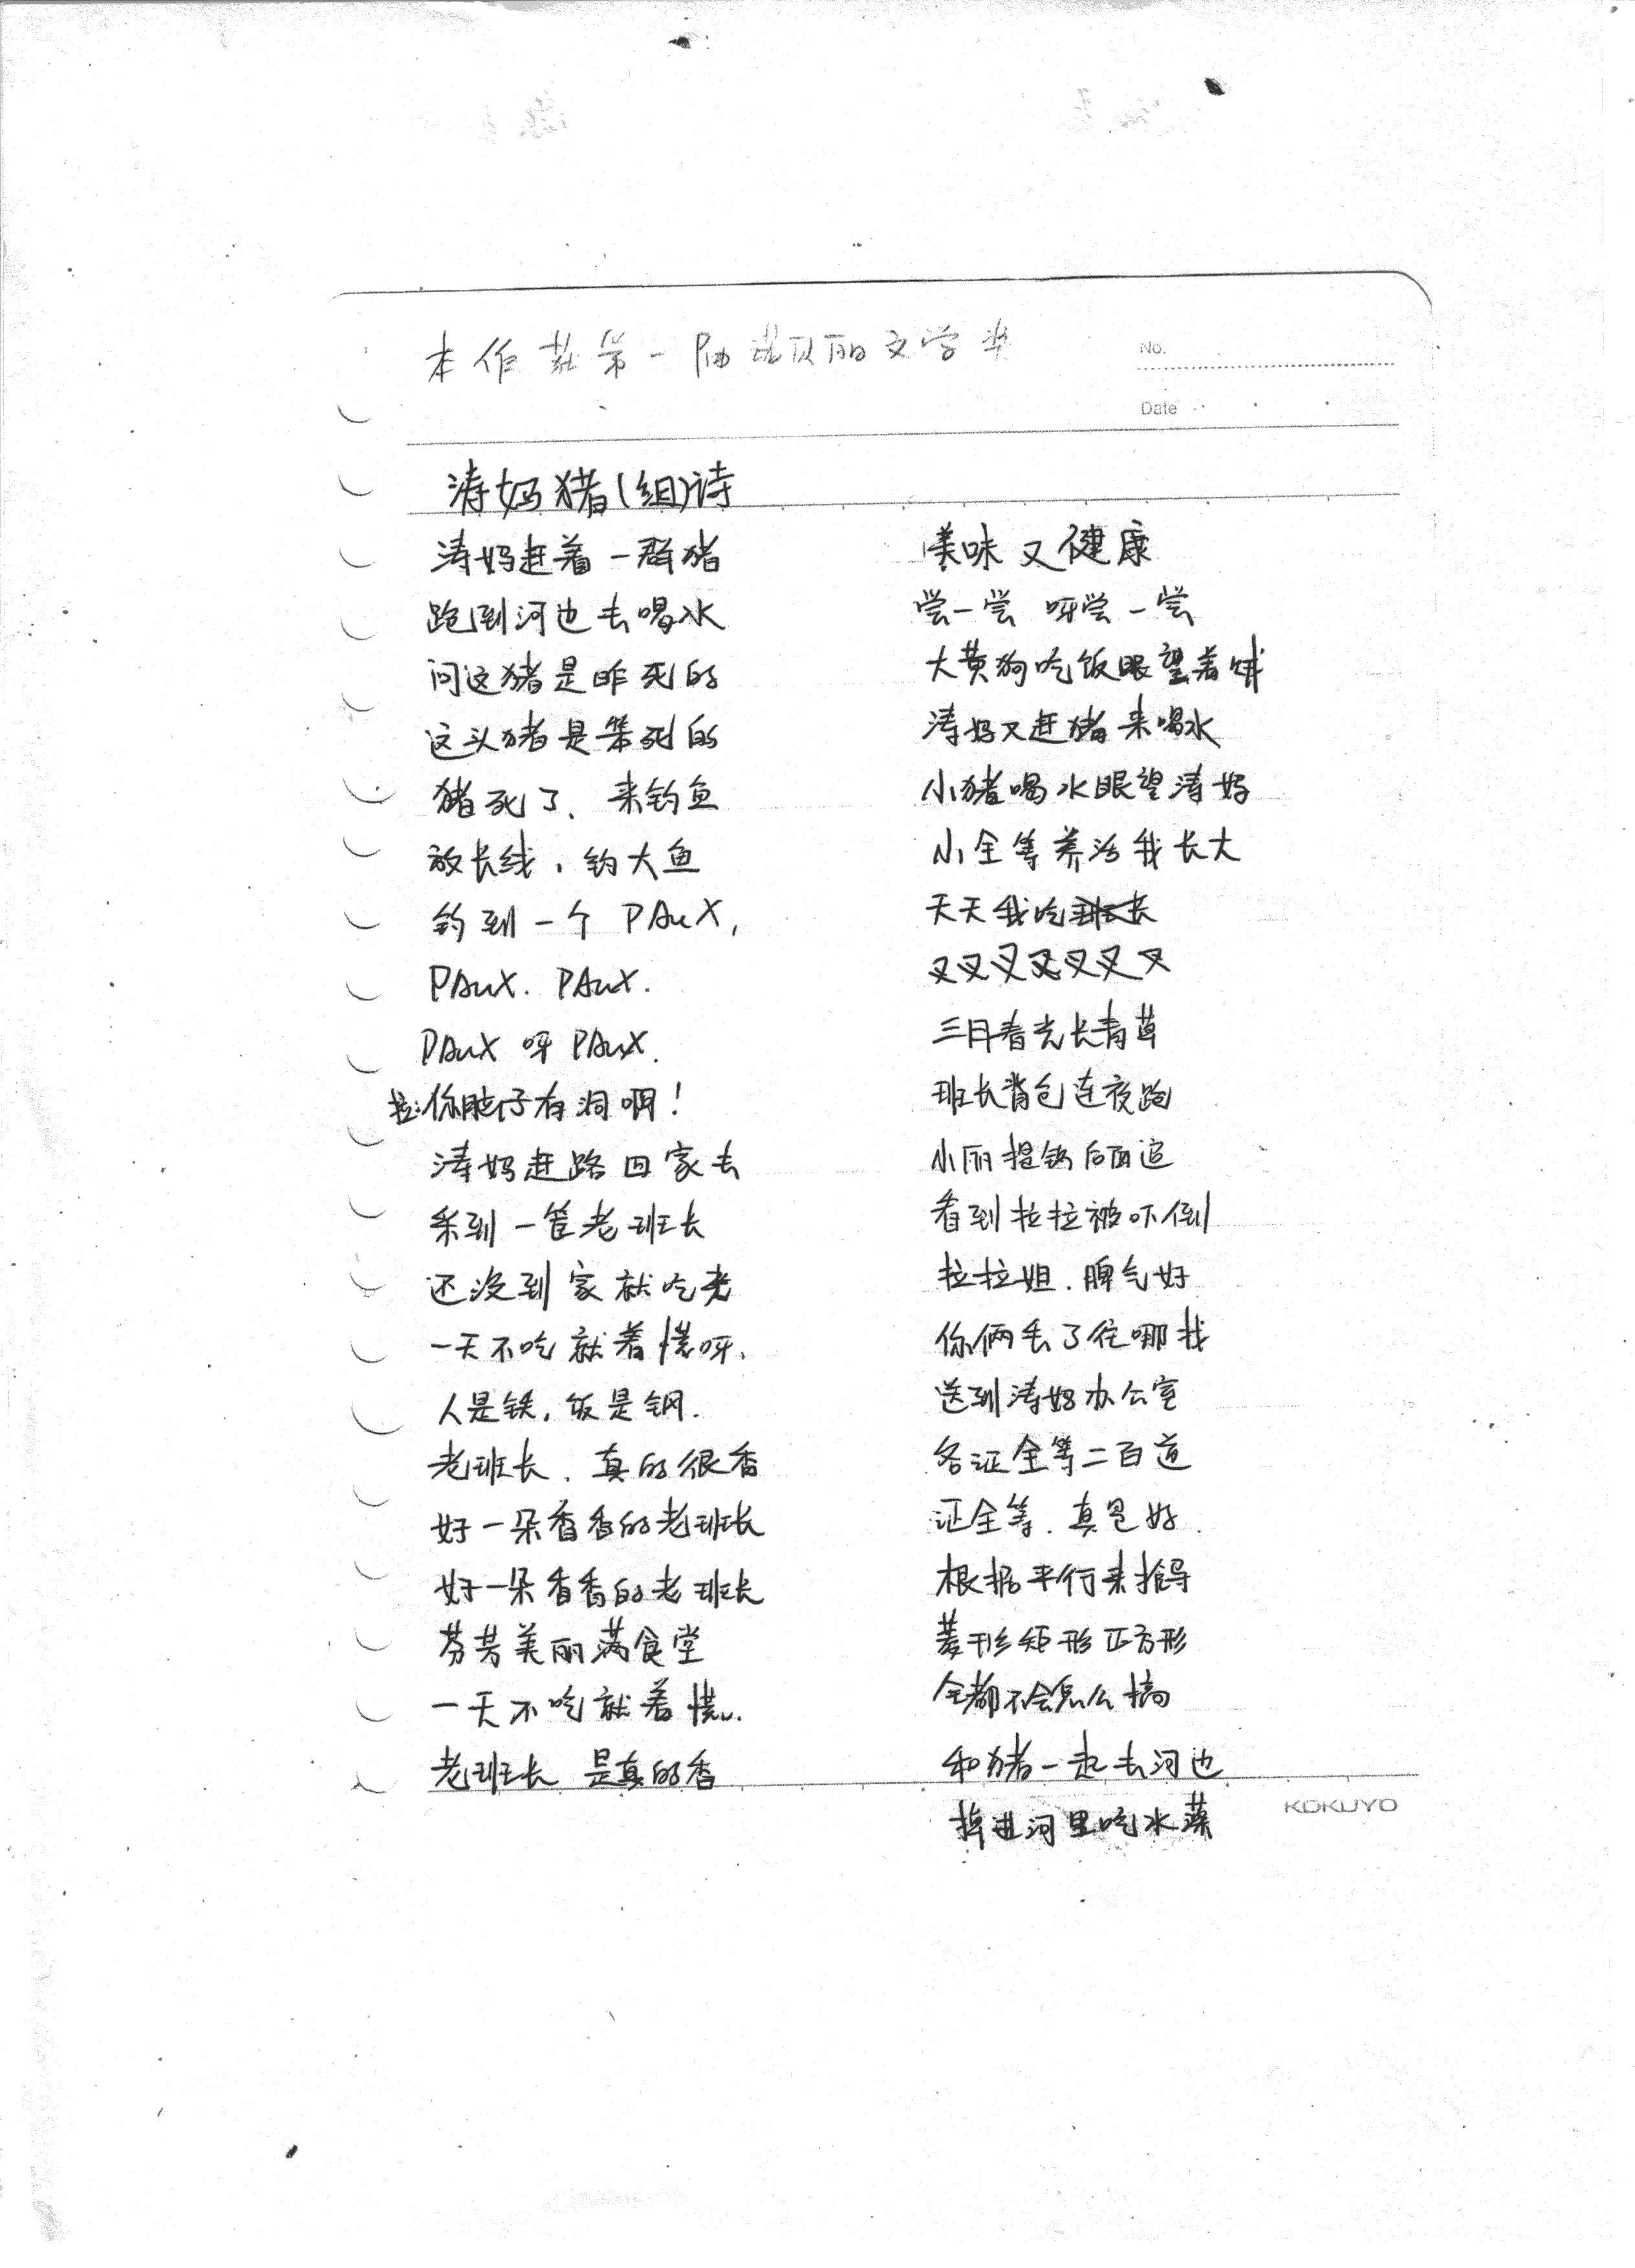 本作获第一届诺贝丽文学奖
No.
Date
涛妈猪(组)诗
涛妈赶着一群猪
跑到河边去喝水
问这猪是咋死的
这头猪是笨死的
猪死了、来钓鱼
放长线，钓大鱼
钓到一个 PAuX,
PAuX. PAuX.
PAuX 呀 PAuX.
拉:你肚子有洞啊!
涛妈赶路回家去
采到一筐老班长
还没到家就吃光
一天不吃就着慌呀.
人是铁,饭是钢.
老班长、真的很香
好一朵香香的老班长
好一朵香香的老班长
芬芳美丽满食堂
一天不吃就着慌.
老班长 是真的香
美味又健康
尝一尝 呀尝一尝
大黄狗吃饭眼望着
涛妈又赶猪来喝水
小猪喝水眼望涛妈
小全等养活我长大
天天我吃班长
又又又又又又又
三月春光长青草
班长背包连夜跑
小丽提锅后面追
看到拉拉被吓倒
拉拉姐、脾气好
你俩丢了往哪找
送到涛妈办公室
各证全等二百道
证全等、真是好.
根据平行来推导
菱形矩形正方形
全都不会怎么搞
和猪一起去河边
掉进河里吃水藻
KOKUYO